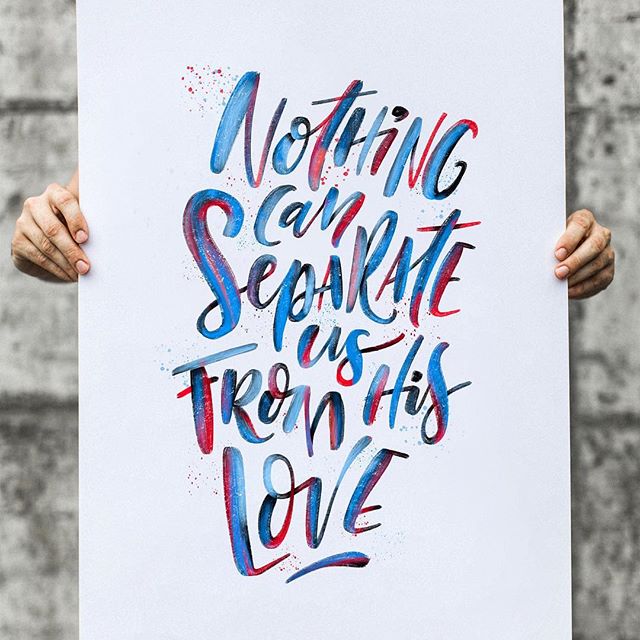 NOTHING
can
SEPARATE
us
FROM HIS
LOVE